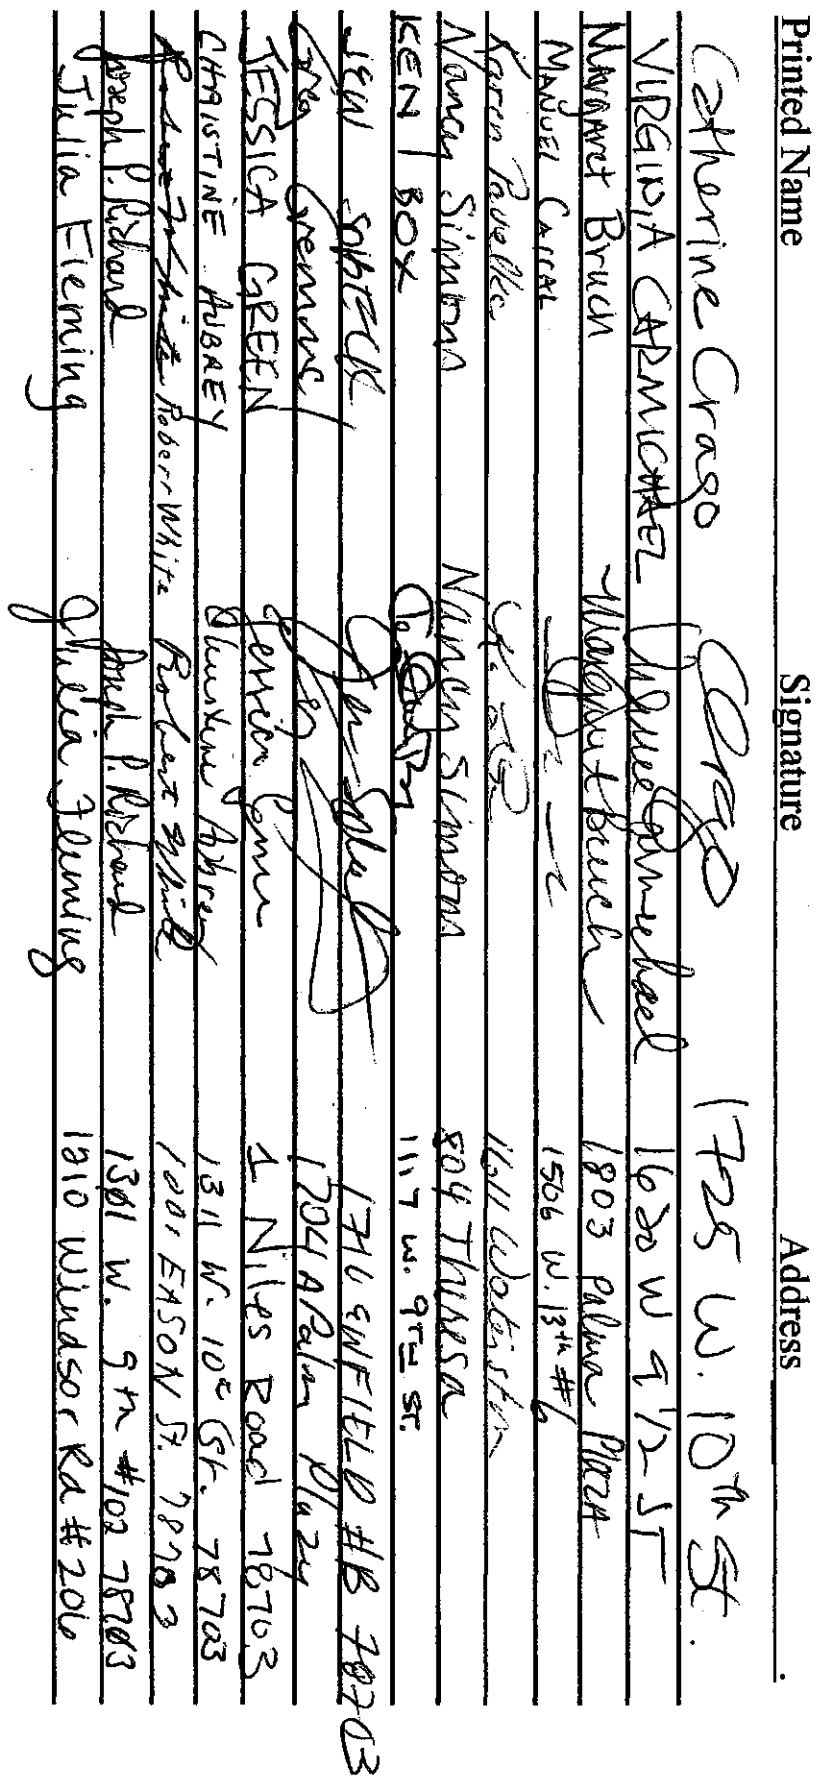 Printed Name Signature Address
Catherine Crago Crago 1725 W. 10th St.
VIRGINIA CARMICHAEL Carmichael 1620 W 9 1/2 ST
Margaret Bruch Margaret Bruch 1803 Palma Plaza
MANUEL 1506 W. 13th #6
Karen Pavelka 1611
Nancy Simons Nancy Simons 804 Theresa
KEN BOX 1117 W. 9TH ST.
JEN ENFIELD #B 78703
Greg 1704 A Palma Plaza
JESSICA GREEN Jessica Green 1 Niles Road 78703
CHRISTINE AUBREY Christine Aubrey 1311 W. 10th St. 78703
Robert White Robert White EASON St. 78703
Joseph P. Richard Joseph P. Richard 1301 W. 9th #102 78703
Julia Fleming Julia Fleming 1210 Windsor Rd #206